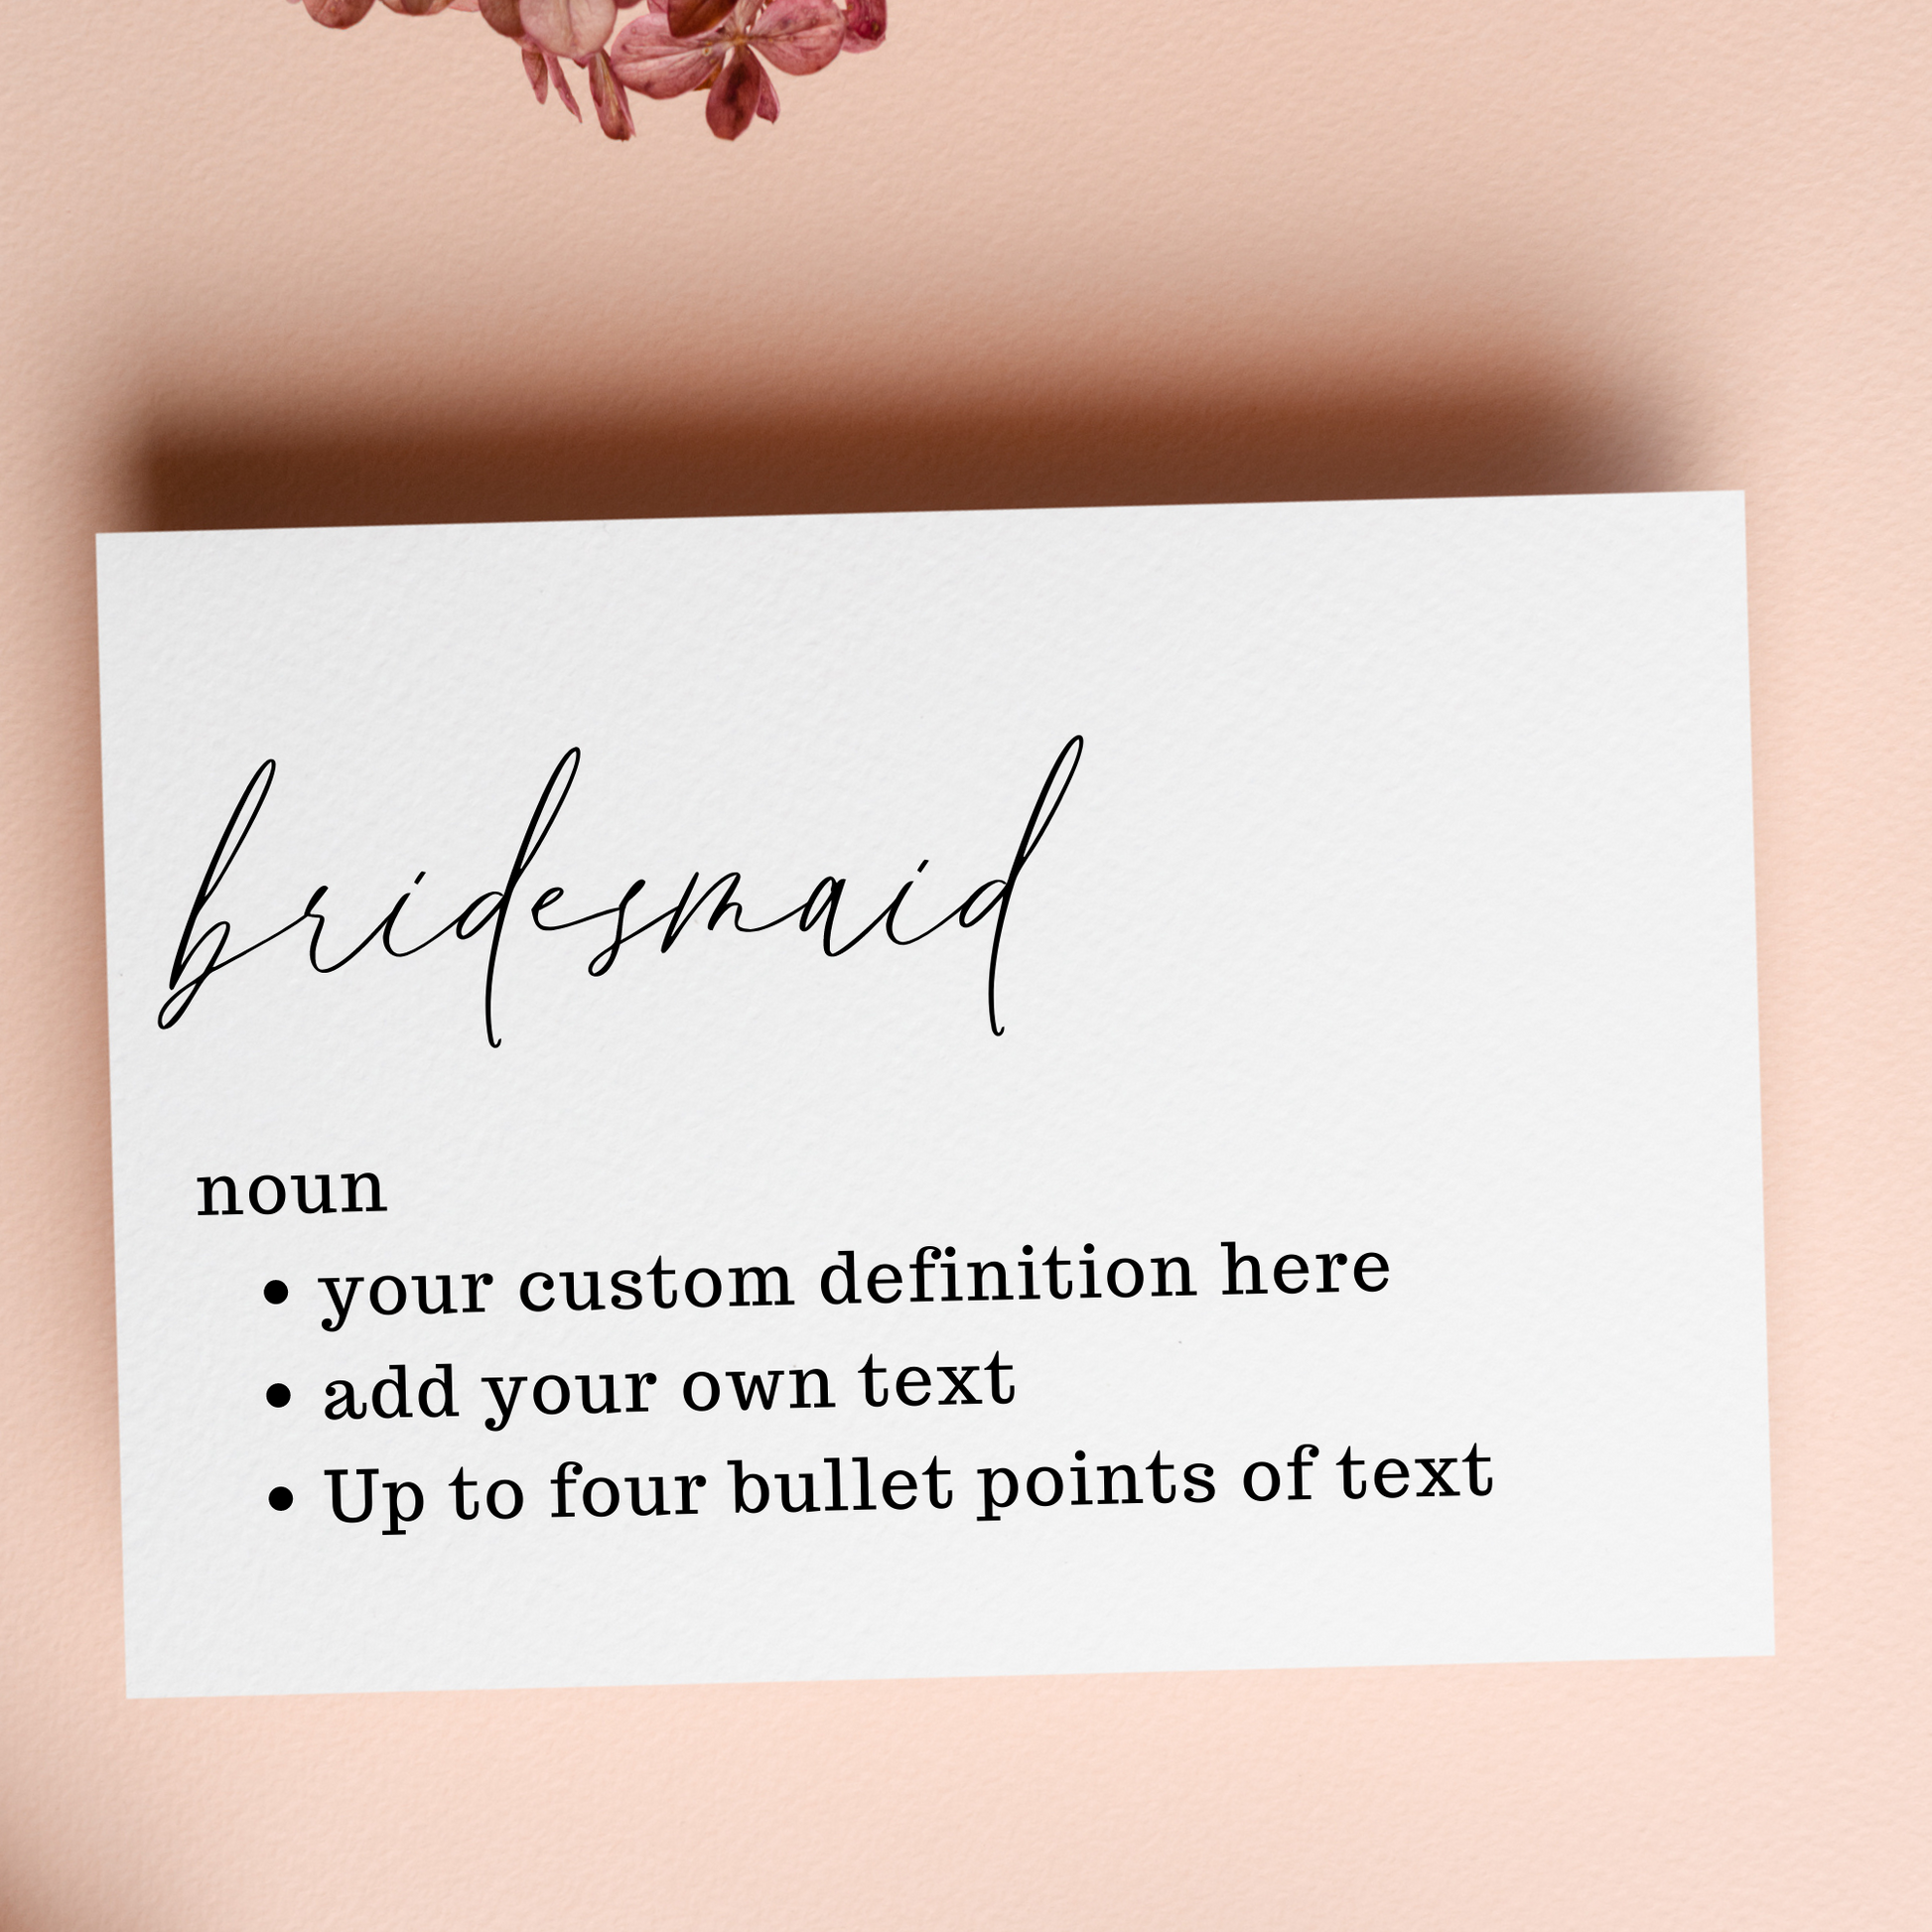 bridesmaid
noun
• your custom definition here
• add your own text
• Up to four bullet points of text